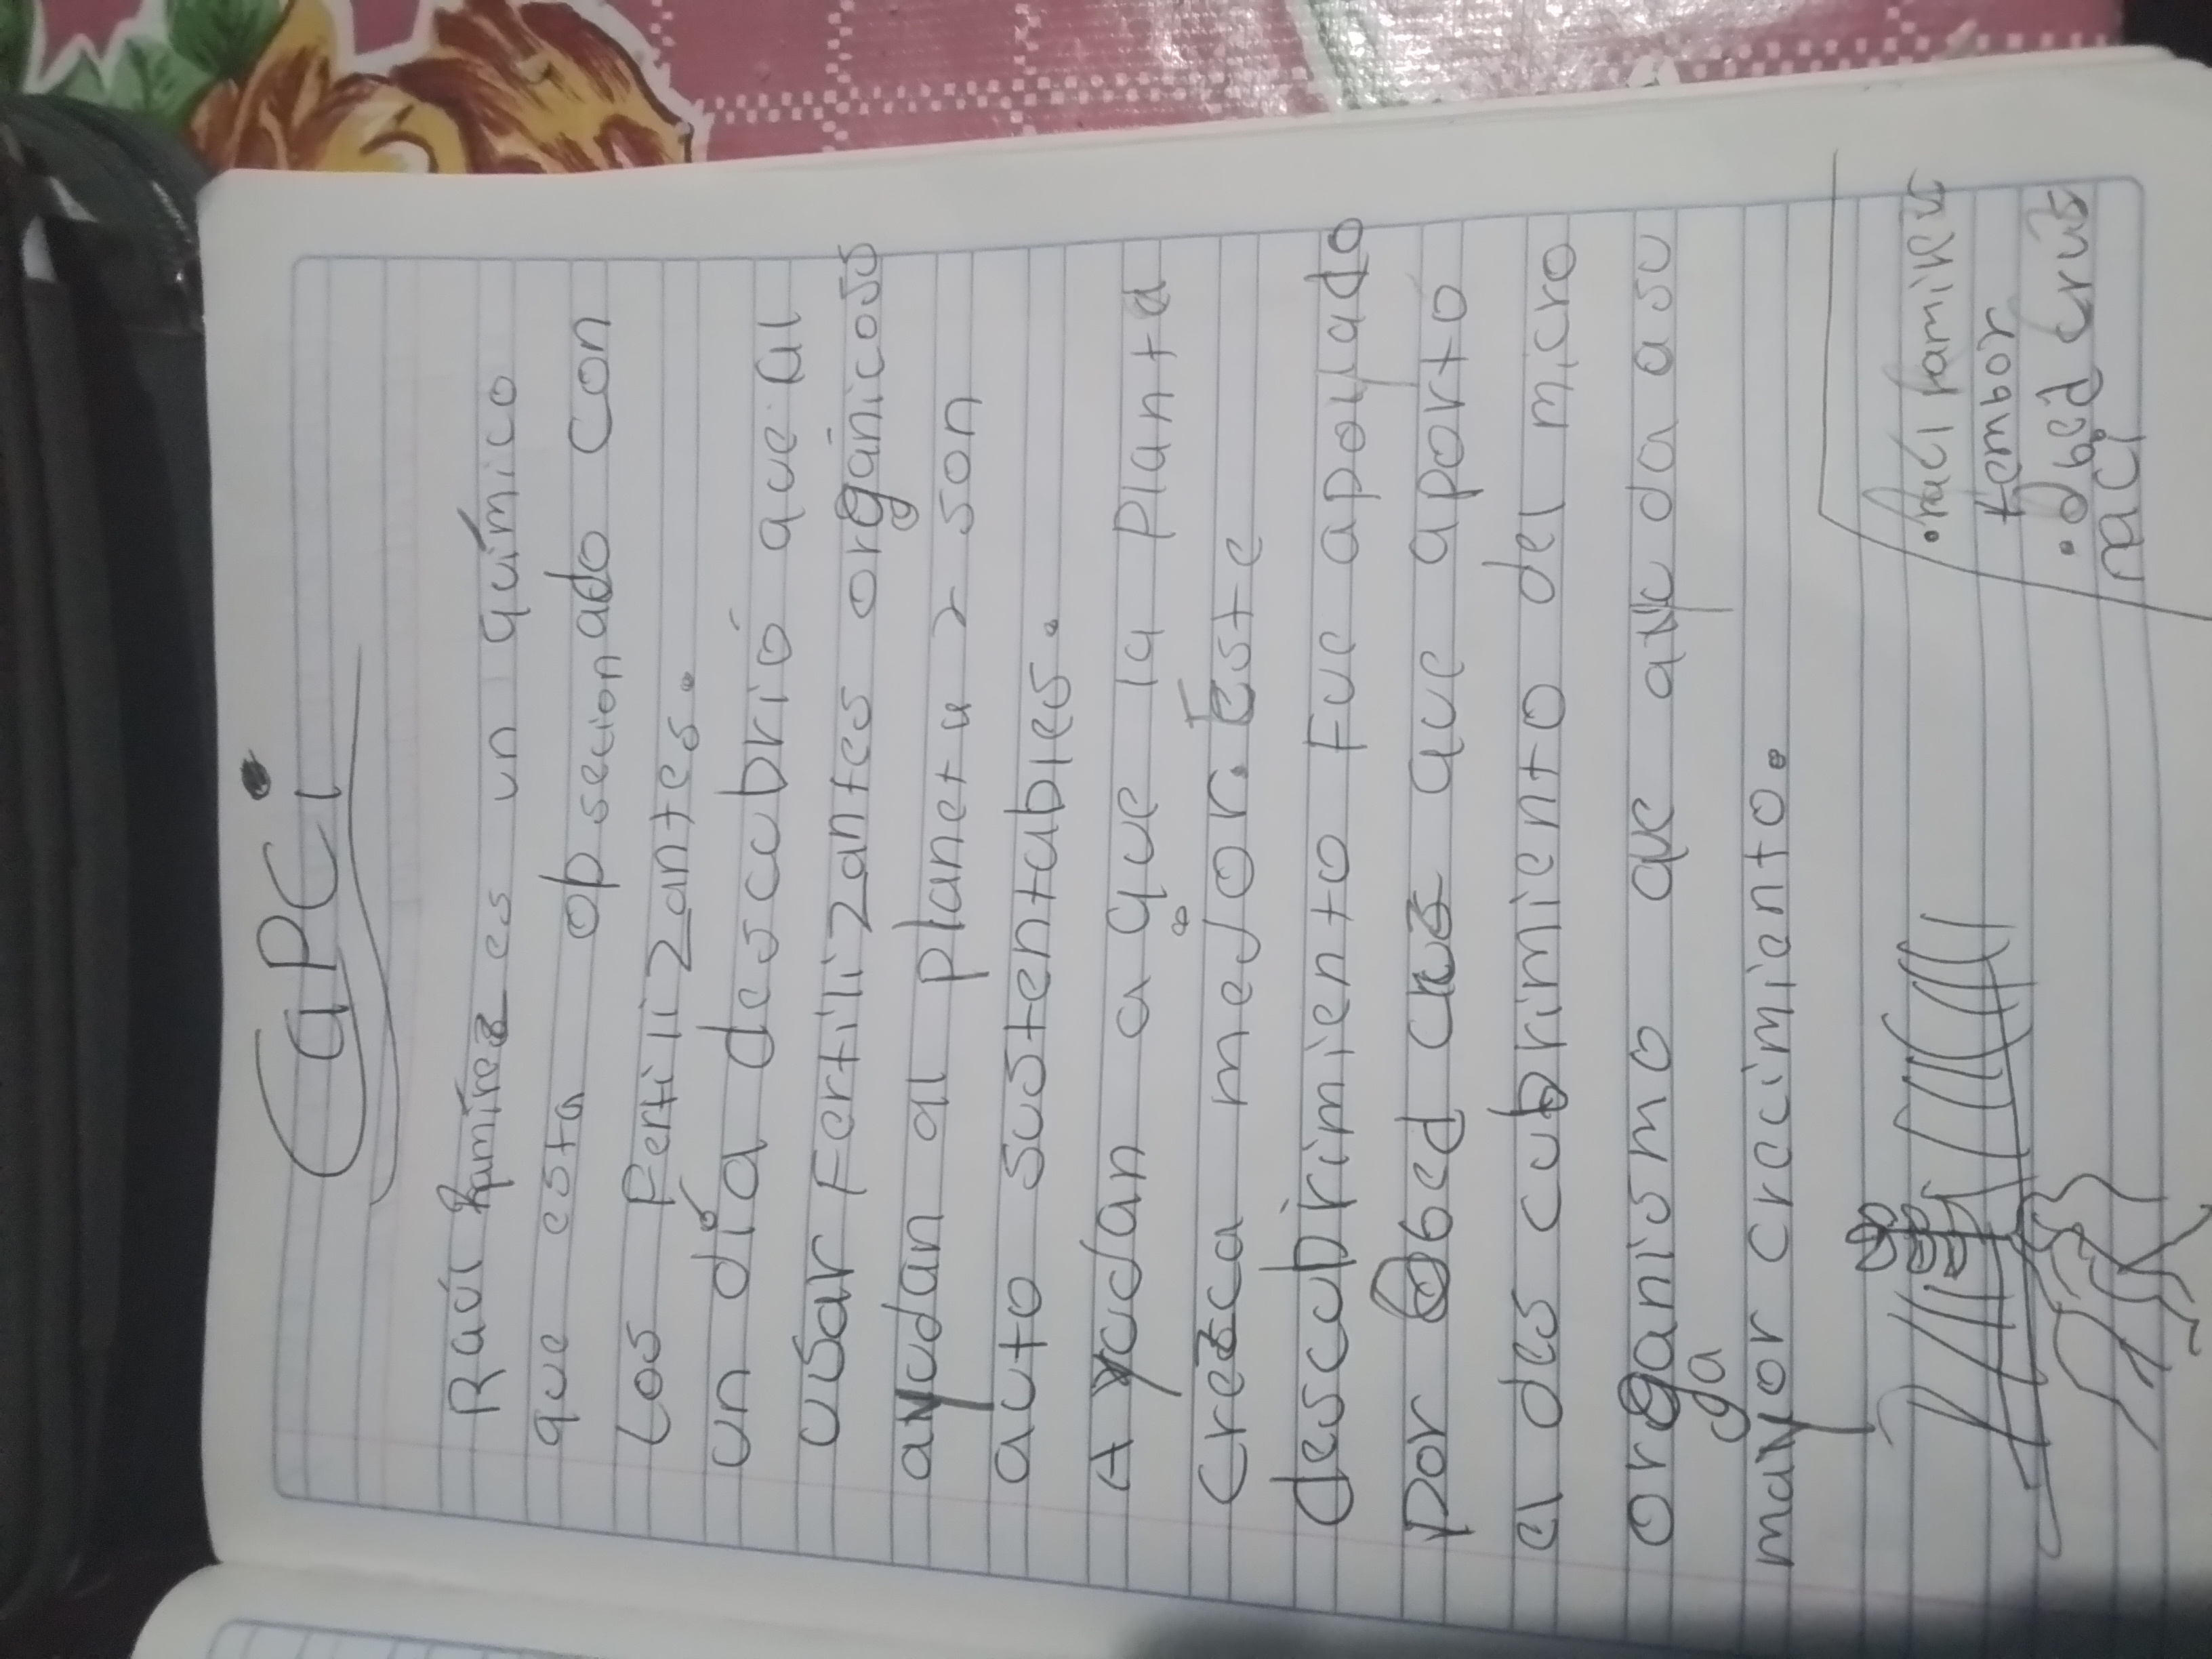 CaPCi
Raúl Ramírez es un químico
que esta opsecionado con
Los Fertilizantes.
un día descubrió que al
usar Fertilizantes orgánicoss
ayudan al planeta y son
auto sustentables.
Ayudan a que la planta
Cresca mejor. Este
descubrimiento Fue apoyado
por Obed crus que aporto
el des cubrimiento del micro
organismo que ayuda a su
ga
mayor crecimiento.
• Raúl Ramires
tomar
• Obed crus